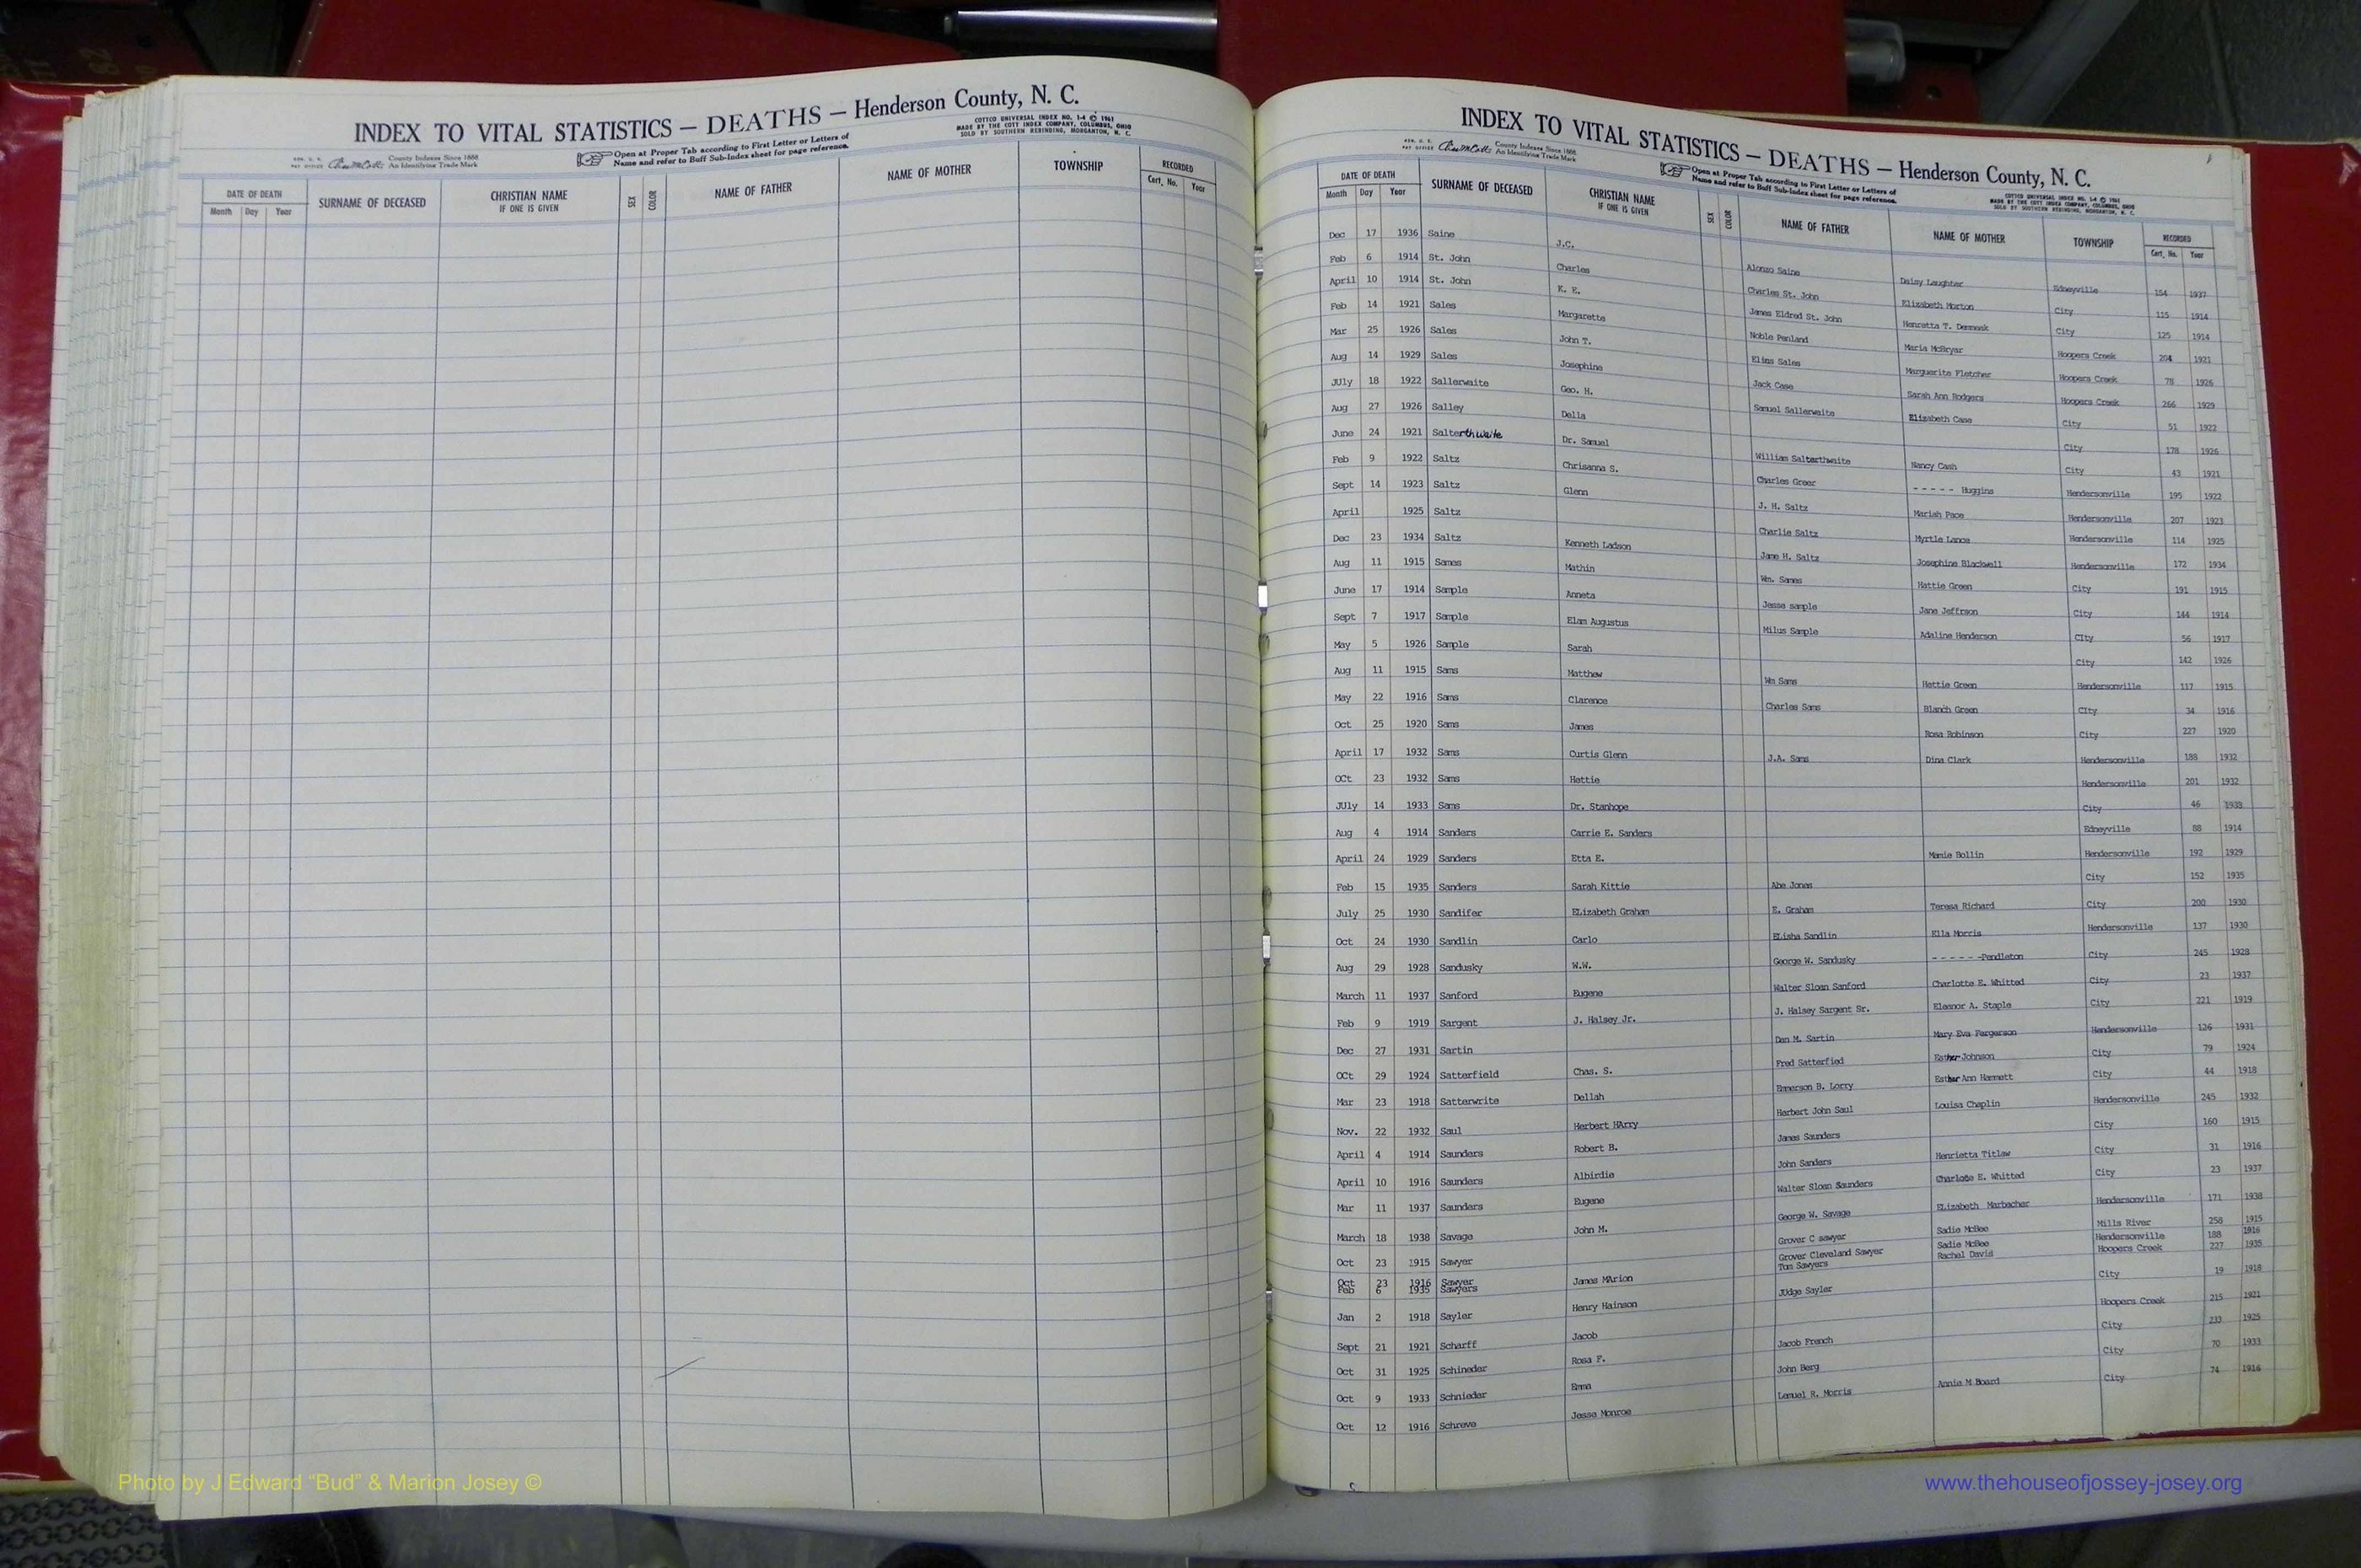 INDEX TO VITAL STATISTICS — DEATHS — Henderson County, N. C.
COTTCO UNIVERSAL INDEX NO. 1-4 © 1961
MADE BY THE COTT INDEX COMPANY, COLUMBUS, OHIO
SOLD BY SOUTHERN REBINDING, MORGANTON, N. C.
County Indexes Since 1888
An Identifying Trade Mark
Open at Proper Tab according to First Letter or Letters of
Name and refer to Buff Sub-Index sheet for page reference.
DATE OF DEATH SURNAME OF DECEASED CHRISTIAN NAME SEX COLOR NAME OF FATHER NAME OF MOTHER TOWNSHIP RECORDED
Month Day Year IF ONE IS GIVEN Cert. No. Year
INDEX TO VITAL STATISTICS — DEATHS — Henderson County, N. C.
County Indexes Since 1888
An Identifying Trade Mark
Open at Proper Tab according to First Letter or Letters of
Name and refer to Buff Sub-Index sheet for page reference.
COTTCO UNIVERSAL INDEX NO. 1-4 © 1961
MADE BY THE COTT INDEX COMPANY, COLUMBUS, OHIO
SOLD BY SOUTHERN REBINDING, MORGANTON, N. C.
DATE OF DEATH SURNAME OF DECEASED CHRISTIAN NAME SEX COLOR NAME OF FATHER NAME OF MOTHER TOWNSHIP RECORDED
Month Day Year IF ONE IS GIVEN Cert. No. Year
Dec 17 1936 Saine J.C. Alonzo Saine Daisy Laughter Edneyville 154 1937
Feb 6 1914 St. John Charles Charles St. John Elizabeth Morton City 115 1914
April 10 1914 St. John K. E. James Eldred St. John Henretta T. City 125 1914
Feb 14 1921 Sales Margarette Noble Penland Maria McBryar Hoopers Creek 204 1921
Mar 25 1926 Sales John T. Elias Sales Marguerite Fletcher Hoopers Creek 78 1926
Aug 14 1929 Sales Josephine Jack Case Sarah Ann Rodgers Hoopers Creek 266 1929
JUly 18 1922 Sallerwaite Geo. H. Samuel Sallerwaite Elizabeth Case City 51 1922
Aug 27 1926 Salley Della City 178 1926
June 24 1921 Salterthwaite Dr. Samuel William Salterthwaite Nancy Cash City 43 1921
Feb 9 1922 Saltz Chrisanna S. Charles Greer - - - - - Huggins Hendersonville 195 1922
Sept 14 1923 Saltz Glenn J. H. Saltz Mariah Pace Hendersonville 207 1923
April 1925 Saltz Charlie Saltz Myrtle Lance Hendersonville 114 1925
Dec 23 1934 Saltz Kenneth Ladson Jane H. Saltz Josephine Blackwell Hendersonville 172 1934
Aug 11 1915 Sames Mathin Wm. Sames Hattie Green City 191 1915
June 17 1914 Sample Anneta Jesse sample Jane Jeffrson City 144 1914
Sept 7 1917 Sample Elam Augustus Milus Sample Adaline Henderson CIty 56 1917
May 5 1926 Sample Sarah City 142 1926
Aug 11 1915 Sams Matthew Wm Sams Hettie Green Hendersonville 117 1915
May 22 1916 Sams Clarence Charles Sams Blanch Green CIty 34 1916
Oct 25 1920 Sams James Rosa Robinson City 227 1920
April 17 1932 Sams Curtis Glenn J.A. Sams Dina Clark Hendersonville 188 1932
OCt 23 1932 Sams Hettie Hendersonville 201 1932
JUly 14 1933 Sams Dr. Stanhope City 46 1933
Aug 4 1914 Sanders Carrie E. Sanders Edneyville 88 1914
April 24 1929 Sanders Etta E. Mamie Bollin Hendersonville 192 1929
Feb 15 1935 Sanders Sarah Kittie Abe Jones City 152 1935
July 25 1930 Sandifer ELizabeth Graham E. Graham Teresa Richard City 200 1930
Oct 24 1930 Sandlin Carlo ELisha Sandlin Ella Morris Hendersonville 137 1930
Aug 29 1928 Sandusky W.W. George W. Sandusky - - - - - -Pendleton City 245 1928
March 11 1937 Sanford Eugene Walter Sloan Sanford Charlotte E. Whitted City 23 1937
Feb 9 1919 Sargent J. Halsey Jr. J. Halsey Sargent Sr. Eleanor A. Staple City 221 1919
Dec 27 1931 Sartin Dan M. Sartin Mary Eva Fergerson Hendersonville 126 1931
OCt 29 1924 Satterfield Chas. S. Fred Satterfied Esther Johnson City 79 1924
Mar 23 1918 Satterwrite Dellah Emmerson B. Lorry Esther Ann Hammett City 44 1918
Nov. 22 1932 Saul Herbert HArry Herbert John Saul Louisa Chaplin Hendersonville 245 1932
April 4 1914 Saunders Robert B. James Saunders City 160 1915
April 10 1916 Saunders Albirdie John Sanders Henrietta Titlaw City 31 1916
Mar 11 1937 Saunders Eugene Walter Sloan Saunders Charlotte E. Whitted City 23 1937
March 18 1938 Savage John M. George W. Savage ELizabeth Marbacher Hendersonville 171 1938
Oct 23 1915 Sawyer Grover C sawyer Sadie McBee Mills River 258 1915
Oct 23 1916 Sawyer James MArion Grover Cleveland Sawyer Sadie McBee Hendersonville 188 1916
Feb 6 1935 Sawyers Tom Sawyers Rachel David Hoopers Creek 227 1935
Jan 2 1918 Sayler Henry Hainson JUdge Sayler City 19 1918
Sept 21 1921 Scharff Jacob Hoopers Creek 215 1921
Oct 31 1925 Schineder Rosa F. Jacob French City 233 1925
Oct 9 1933 Schnieder Emma John Berg City 70 1933
Oct 12 1916 Schreve Jesse Monroe Lemuel R. Morris Annie M Board City 74 1916
Photo by J Edward “Bud” & Marion Josey ©
www.thehouseofjossey-josey.org